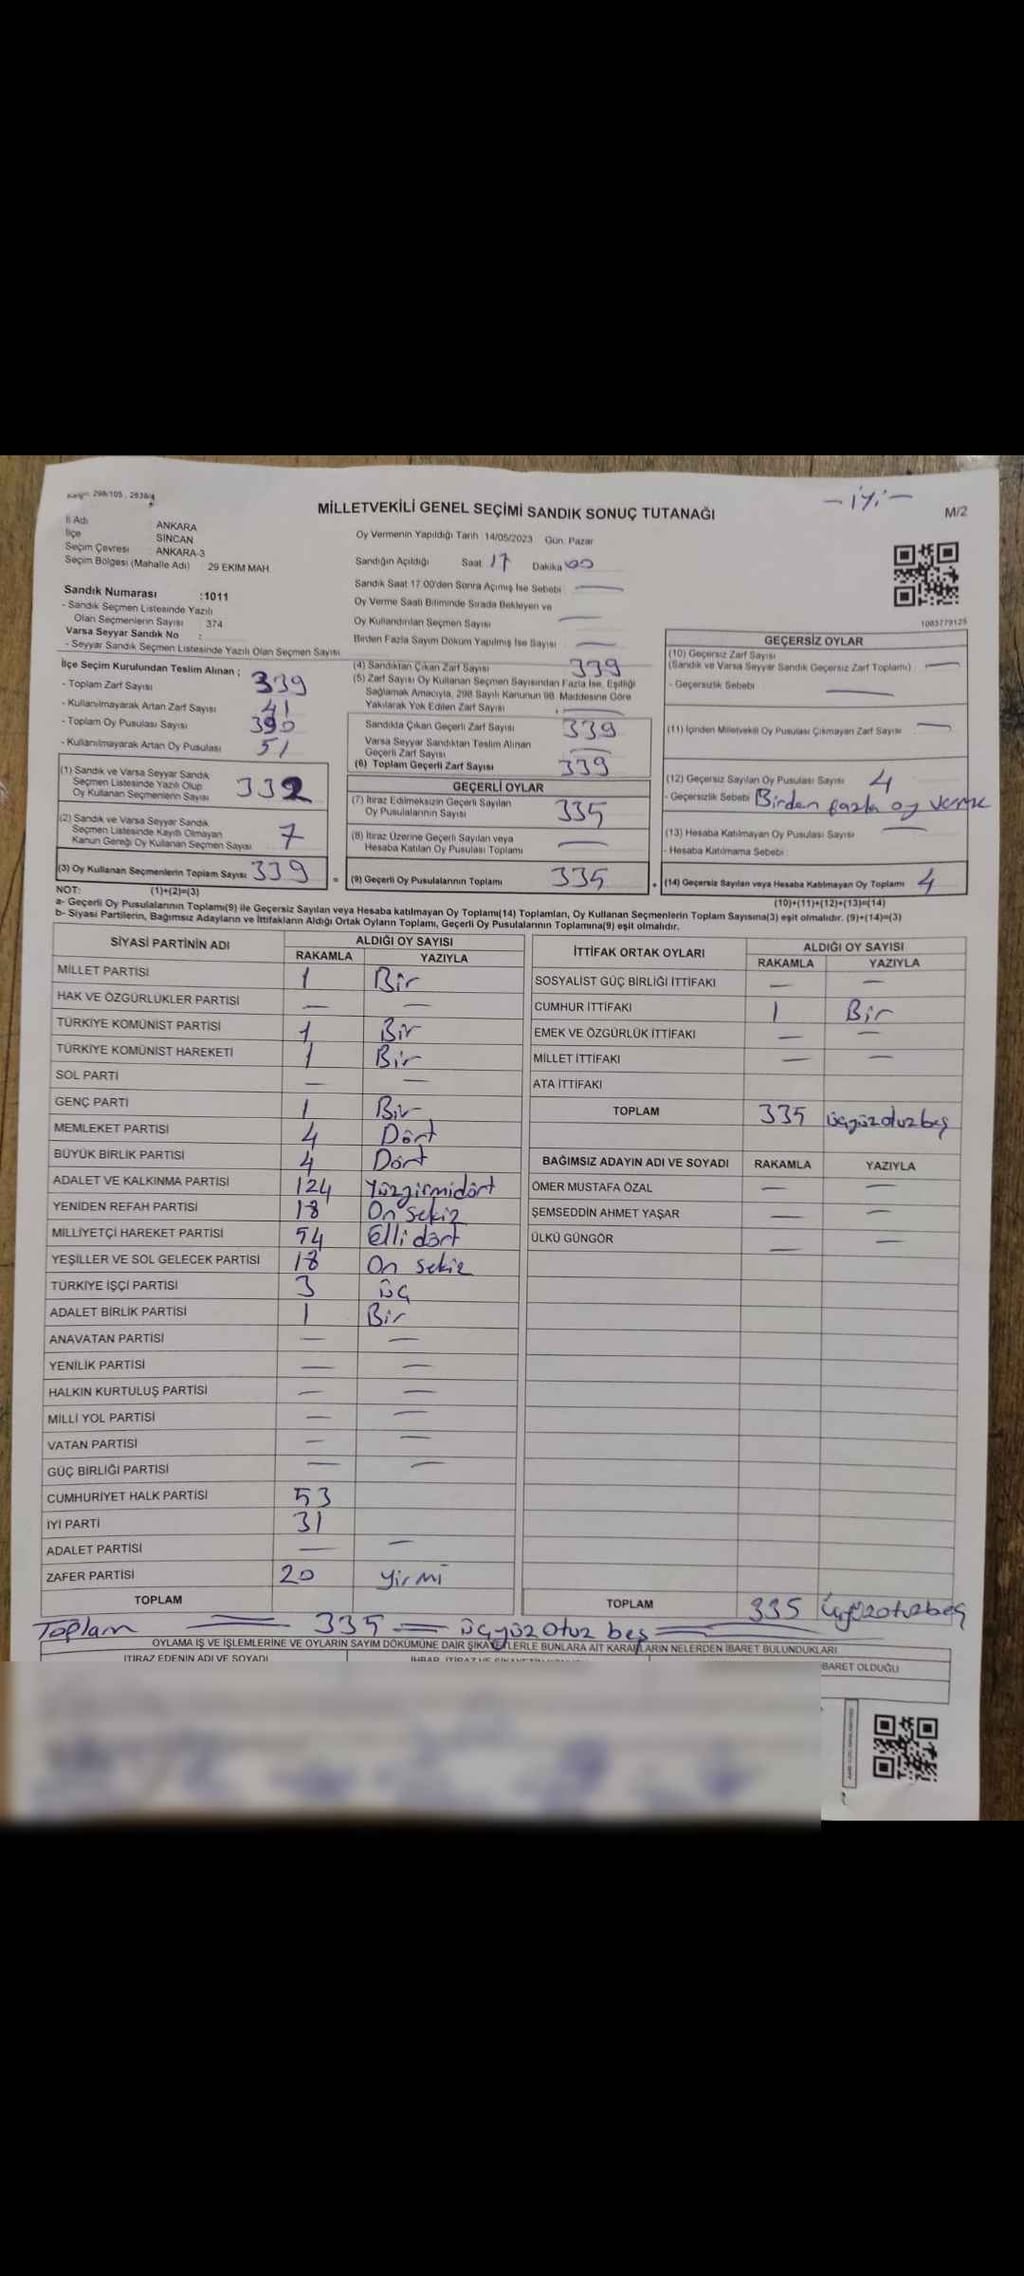 - iyi -
MİLLETVEKİLİ GENEL SEÇİMİ SANDIK SONUÇ TUTANAĞI
M/2
İl Adı ANKARA
İlçe SİNCAN
Seçim Çevresi ANKARA-3
Seçim Bölgesi (Mahalle Adı) 29 EKİM MAH.
Oy Vermenin Yapıldığı Tarih 14/05/2023 Gün: Pazar
Sandığın Açıldığı Saat 17 Dakika 00
Sandık Saat 17.00'den Sonra Açımış İse Sebebi —
Oy Verme Saati Bitiminde Sırada Bekleyen ve
Oy Kullandırılan Seçmen Sayısı —
Birden Fazla Sayım Döküm Yapılmış İse Sayısı —
1083779125
Sandık Numarası :1011
- Sandık Seçmen Listesinde Yazılı
Olan Seçmenlerin Sayısı 374
Varsa Seyyar Sandık No :
- Seyyar Sandık Seçmen Listesinde Yazılı Olan Seçmen Sayısı
İlçe Seçim Kurulundan Teslim Alınan ;
- Toplam Zarf Sayısı 339
- Kullanılmayarak Artan Zarf Sayısı 41
- Toplam Oy Pusulası Sayısı 390
- Kullanılmayarak Artan Oy Pusulası 51
(1) Sandık ve Varsa Seyyar Sandık
Seçmen Listesinde Yazılı Olup
Oy Kullanan Seçmenlerin Sayısı 332
(2) Sandık ve Varsa Seyyar Sandık
Seçmen Listesinde Kayıtlı Olmayan
Kanun Gereği Oy Kullanan Seçmen Sayısı 7
(3) Oy Kullanan Seçmenlerin Toplam Sayısı 339 =
(4) Sandıktan Çıkan Zarf Sayısı 339
(5) Zarf Sayısı Oy Kullanan Seçmen Sayısından Fazla İse, Eşitliği
Sağlamak Amacıyla, 298 Sayılı Kanunun 98. Maddesine Göre
Yakılarak Yok Edilen Zarf Sayısı : —
Sandıkta Çıkan Geçerli Zarf Sayısı 339
Varsa Seyyar Sandıktan Teslim Alınan
Geçerli Zarf Sayısı —
(6) Toplam Geçerli Zarf Sayısı 339
GEÇERLİ OYLAR
(7) İtiraz Edilmeksizin Geçerli Sayılan
Oy Pusulalarının Sayısı 335
(8) İtiraz Üzerine Geçerli Sayılan veya
Hesaba Katılan Oy Pusulası Toplamı —
(9) Geçerli Oy Pusulalarının Toplamı 335
GEÇERSİZ OYLAR
(10) Geçersiz Zarf Sayısı
(Sandık ve Varsa Seyyar Sandık Geçersiz Zarf Toplamı) —
- Geçersizlik Sebebi —
(11) İçinden Milletvekili Oy Pusulası Çıkmayan Zarf Sayısı —
(12) Geçersiz Sayılan Oy Pusulası Sayısı 4
- Geçersizlik Sebebi Birden fazla oy verme
(13) Hesaba Katılmayan Oy Pusulası Sayısı —
- Hesaba Katılmama Sebebi :
(14) Geçersiz Sayılan veya Hesaba Katılmayan Oy Toplamı 4
NOT: (1)+(2)=(3)
(10)+(11)+(12)+(13)=(14)
a- Geçerli Oy Pusulalarının Toplamı(9) ile Geçersiz Sayılan veya Hesaba katılmayan Oy Toplamı(14) Toplamları, Oy Kullanan Seçmenlerin Toplam Sayısına(3) eşit olmalıdır. (9)+(14)=(3)
b- Siyasi Partilerin, Bağımsız Adayların ve İttifakların Aldığı Ortak Oyların Toplamı, Geçerli Oy Pusulalarının Toplamına(9) eşit olmalıdır.
SİYASİ PARTİNİN ADI
ALDIĞI OY SAYISI
RAKAMLA YAZIYLA
MİLLET PARTİSİ 1 Bir
HAK VE ÖZGÜRLÜKLER PARTİSİ — —
TÜRKİYE KOMÜNİST PARTİSİ 1 Bir
TÜRKİYE KOMÜNİST HAREKETİ 1 Bir
SOL PARTİ — —
GENÇ PARTİ 1 Bir
MEMLEKET PARTİSİ 4 Dört
BÜYÜK BİRLİK PARTİSİ 4 Dört
ADALET VE KALKINMA PARTİSİ 124 Yüzyirmidört
YENİDEN REFAH PARTİSİ 18 On sekiz
MİLLİYETÇİ HAREKET PARTİSİ 54 Elli dört
YEŞİLLER VE SOL GELECEK PARTİSİ 18 On sekiz
TÜRKİYE İŞÇİ PARTİSİ 3 üç
ADALET BİRLİK PARTİSİ 1 Bir
ANAVATAN PARTİSİ — —
YENİLİK PARTİSİ — —
HALKIN KURTULUŞ PARTİSİ — —
MİLLİ YOL PARTİSİ — —
VATAN PARTİSİ — —
GÜÇ BİRLİĞİ PARTİSİ — —
CUMHURİYET HALK PARTİSİ 53
İYİ PARTİ 31
ADALET PARTİSİ — —
ZAFER PARTİSİ 20 yirmi
TOPLAM
İTTİFAK ORTAK OYLARI
ALDIĞI OY SAYISI
RAKAMLA YAZIYLA
SOSYALİST GÜÇ BİRLİĞİ İTTİFAKI — —
CUMHUR İTTİFAKI 1 Bir
EMEK VE ÖZGÜRLÜK İTTİFAKI — —
MİLLET İTTİFAKI — —
ATA İTTİFAKI
TOPLAM 335 üçyüzotuzbeş
BAĞIMSIZ ADAYIN ADI VE SOYADI RAKAMLA YAZIYLA
ÖMER MUSTAFA ÖZAL — —
ŞEMSEDDİN AHMET YAŞAR — —
ÜLKÜ GÜNGÖR — —
TOPLAM 335 üçyüzotuzbeş
Toplam = 335 = üçyüz otuz beş =
OYLAMA İŞ VE İŞLEMLERİNE VE OYLARIN SAYIM DÖKÜMÜNE DAİR ŞİKAYETLERLE BUNLARA AİT KARARLARIN NELERDEN İBARET BULUNDUKLARI
İTİRAZ EDENİN ADI VE SOYADI
BARET OLDUĞU